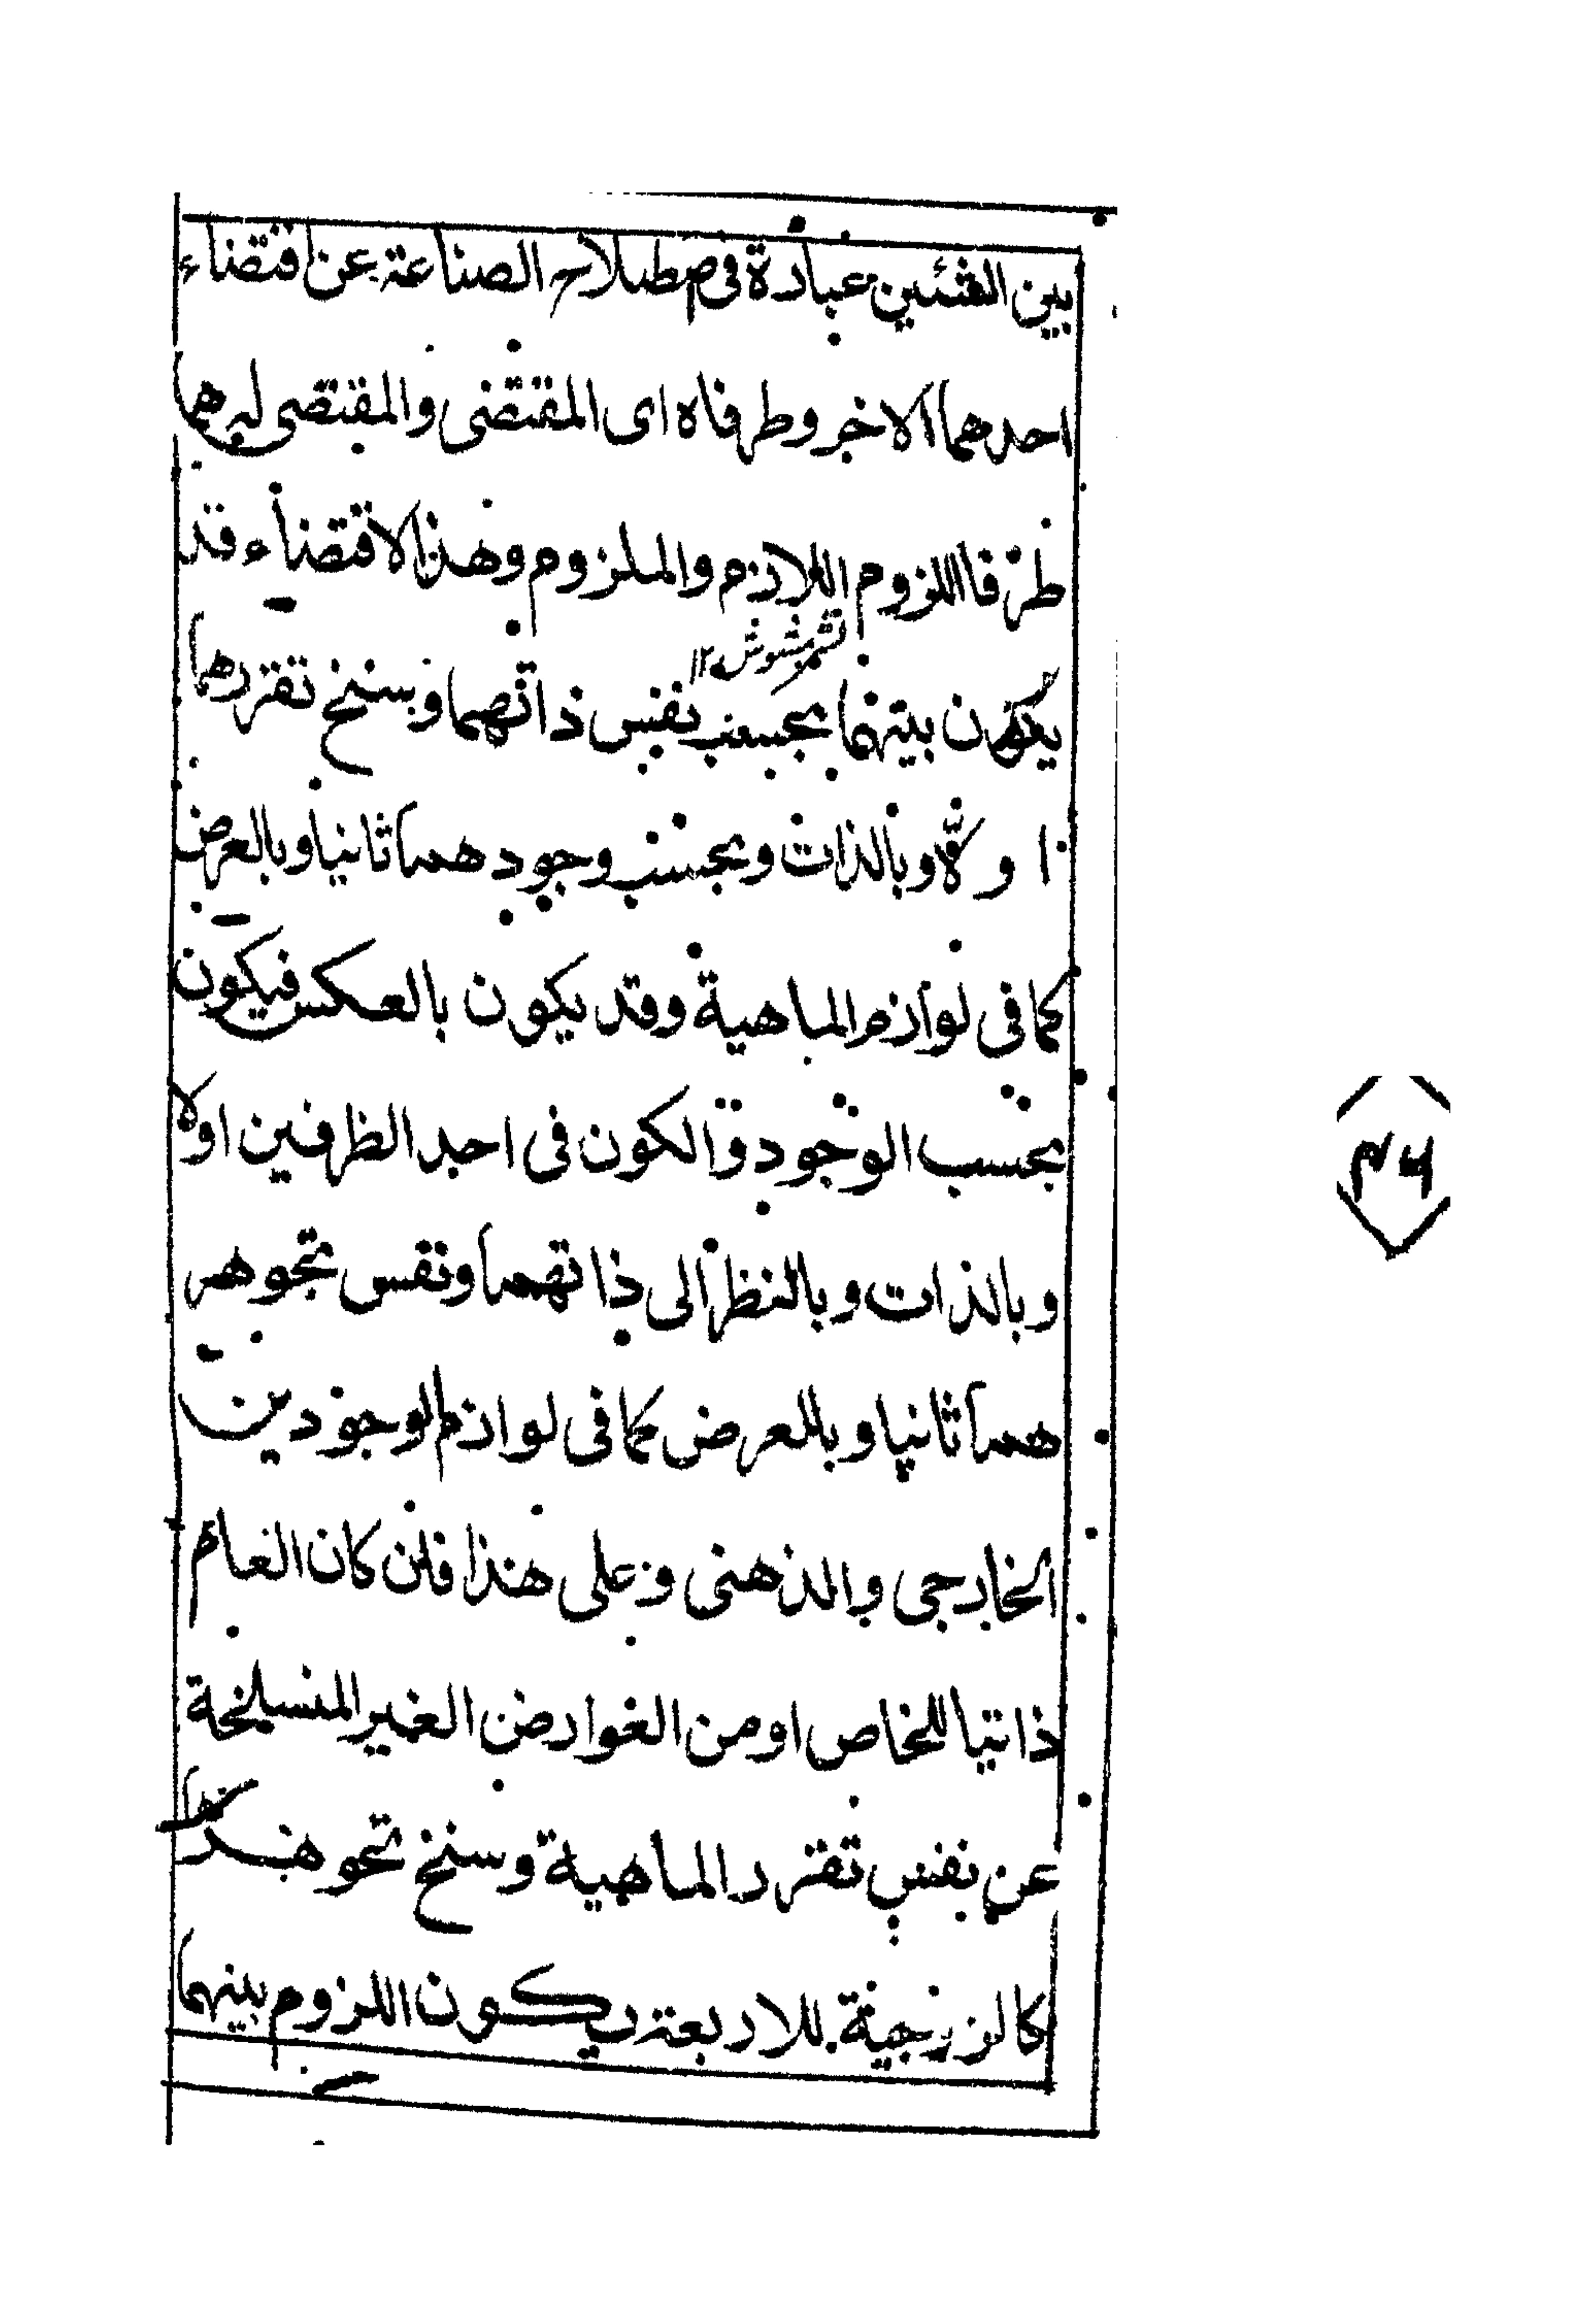 بين الشئين عبارة فى صطلاح الصناعة عن اقتضاء
احدهما الاخر وطرفاه اى المقتضى والمقتضى له هما
طرفا اللزوم اللازم والملزوم وهذا لاقتضاء قد
نشر مشوش ١٢
يكون بينهما بحسب نفس ذاتهما وبسنخ تقررهما
اولا وبالذات وبحسب وجود هما ثانيا وبالعرض
كما فى لوازم الماهية وقد يكون بالعكس فيكون
بحسب الوجود والكون فى احد الظرفين اولا
وبالذات وبالنظر الى ذاتهما ونفس تجوهر
هما ثانيا وبالعرض كما فى لوازم الوجودين
الخارجى والذهنى وعلى هذا فلن كان العام
ذاتيا للخاص او من العوارض الغير المنسلخة
عن نفس تقرر الماهية وسنخ تجوهرها
كالزوجية للاربعة يكون اللزوم بينهما